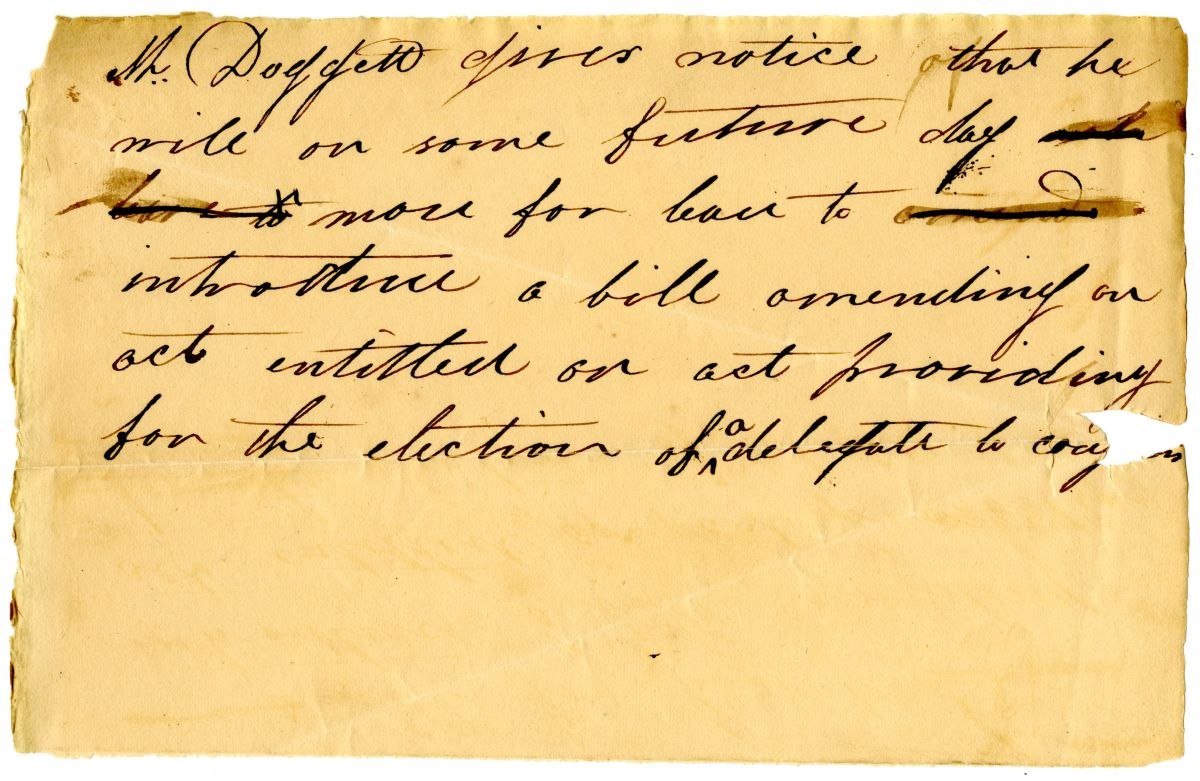 Mr. Doggett gives notice that he
will on some future day ask
leave to move for leave to amend
introduce a bill amending an
act entitled an act providing
for the election of a delegate to cong ss